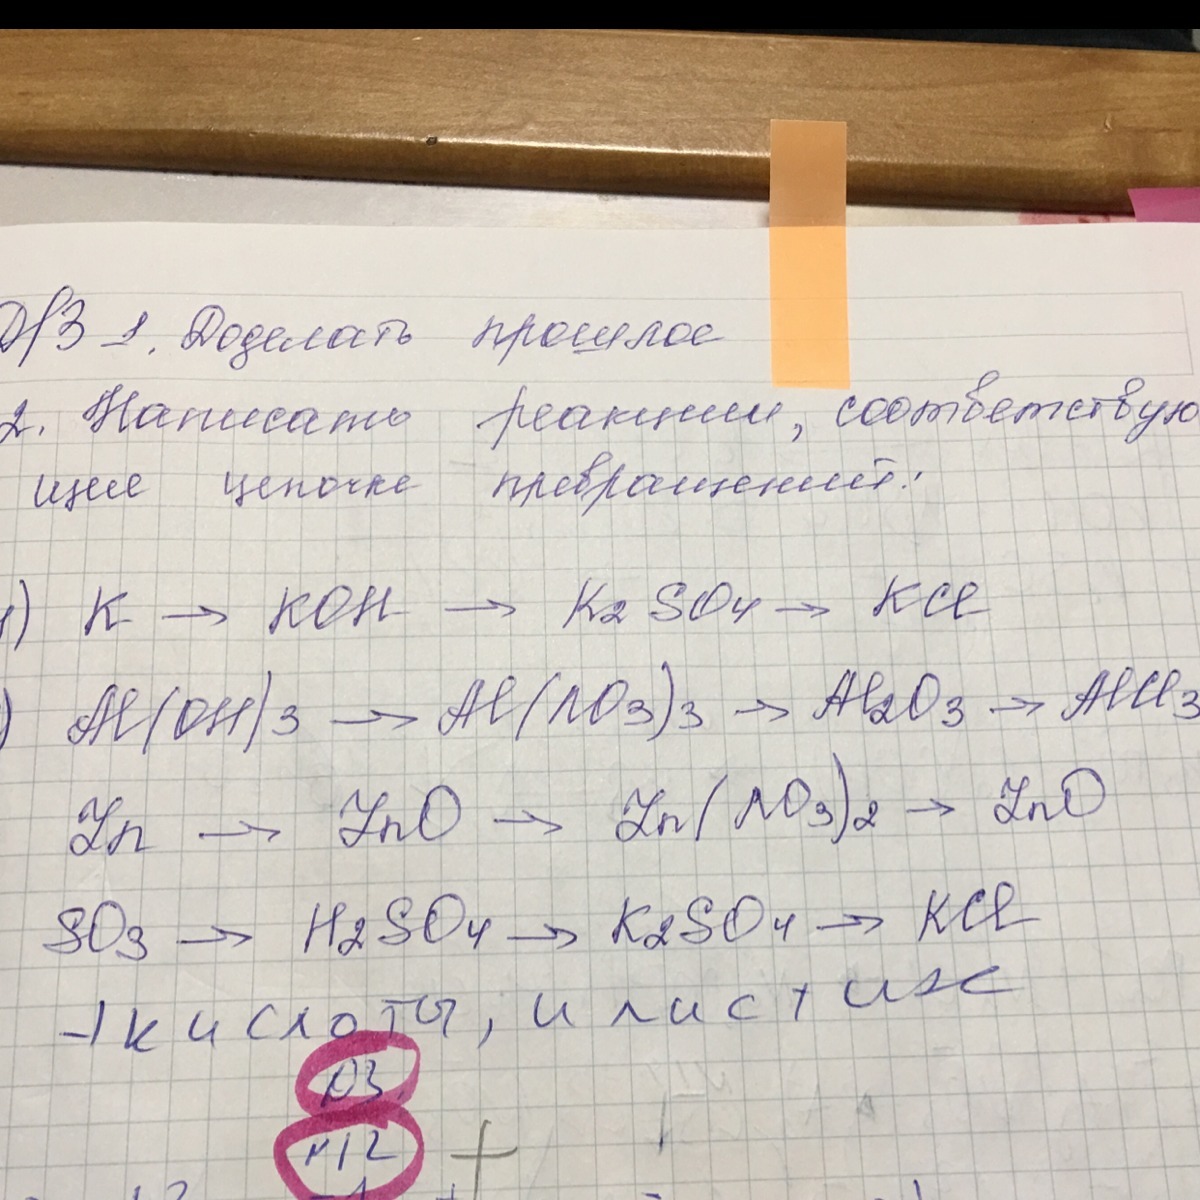 Д/З 1. Доделать прошлое
2. Написать реакции, соответствую
щие цепочке превращений:
1) K → KOH → K2SO4 → KCl
) Al(OH)3 → Al(NO3)3 → Al2O3 → AlCl3
Zn → ZnO → Zn(NO3)2 → ZnO
SO3 → H2SO4 → K2SO4 → KCl
кислоты, и
ДЗ.
№12 +